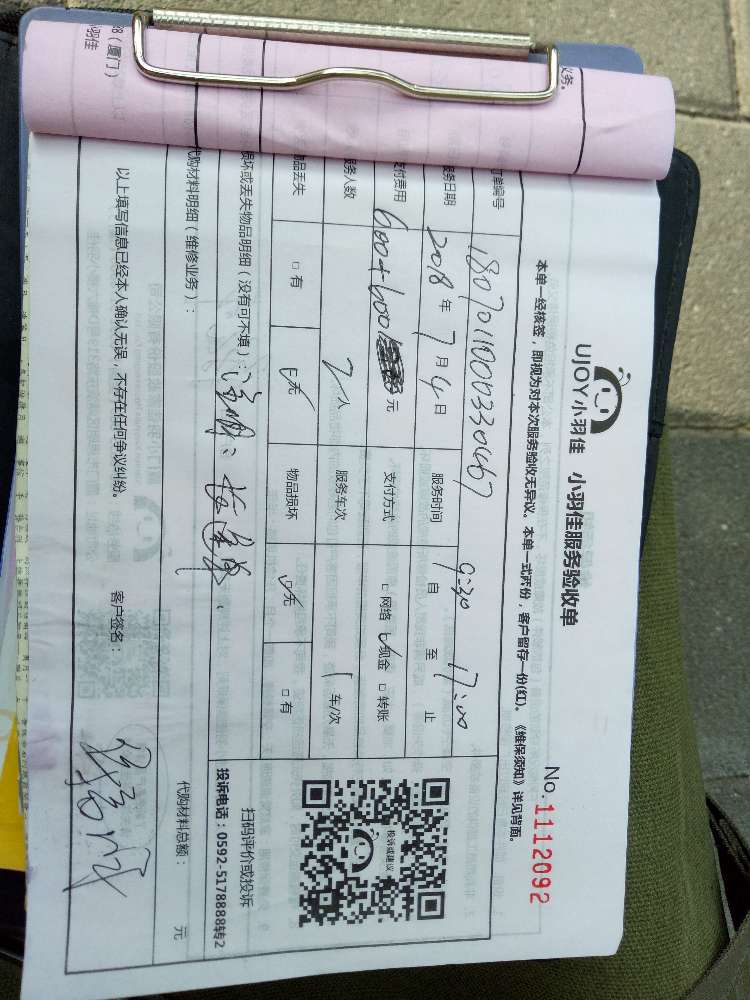 UJOY小羽佳 小羽佳服务验收单
No.1112092
本单一经核签，即视为对本次服务验收无异议。本单一式两份，客户留存一份(红)。《维保须知》详见背面。
订单编号 1807011000330467
服务日期 2018年7月4日 服务时间 9:30 自 至 17:00 止
支付费用 600+600 元 支付方式 □网络 ☑现金 □转账
服务人数 2人 服务车次 1车/次
物品丢失 □有 ☑无 物品损坏 ☑无 □有
扫码评价或投诉
投诉或建议
投诉电话：0592-5178888转2
损坏或丢失物品明细（没有可不填）：
代购材料明细（维修业务）：
代购材料总额： 元
以上填写信息已经本人确认无误，不存在任何争议纠纷。
客户签名：
（厦门）
小羽佳